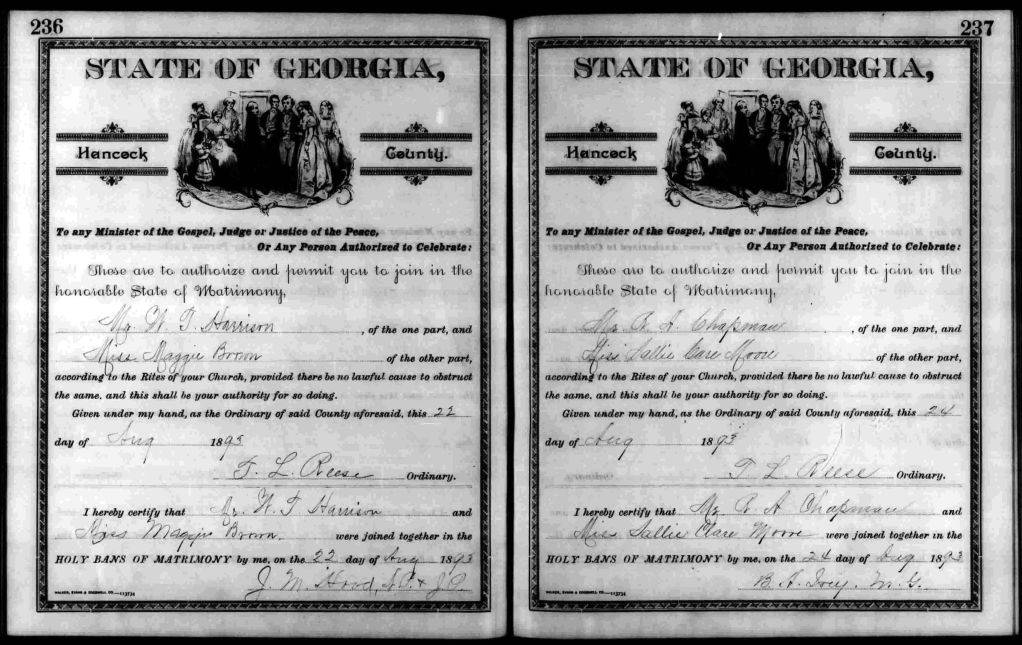 236
STATE OF GEORGIA,
Hancock County.
To any Minister of the Gospel, Judge or Justice of the Peace,
Or Any Person Authorized to Celebrate:
These are to authorize and permit you to join in the
honorable State of Matrimony,
Mr. W. T. Harrison, of the one part, and
Miss Maggie Brown of the other part,
according to the Rites of your Church, provided there be no lawful cause to obstruct
the same, and this shall be your authority for so doing.
Given under my hand, as the Ordinary of said County aforesaid, this 22
day of Aug 1893
T. L. Reese Ordinary.
I hereby certify that Mr. W. T. Harrison and
Miss Maggie Brown were joined together in the
HOLY BANS OF MATRIMONY by me, on the 22 day of Aug 1893
J. M. Hood, N.P. & J.P.
WALKER, EVANS & COGSWELL CO.—113734
237
STATE OF GEORGIA,
Hancock County.
To any Minister of the Gospel, Judge or Justice of the Peace,
Or Any Person Authorized to Celebrate:
These are to authorize and permit you to join in the
honorable State of Matrimony,
Mr R. A. Chapman, of the one part, and
Miss Sallie Clare Moore of the other part,
according to the Rites of your Church, provided there be no lawful cause to obstruct
the same, and this shall be your authority for so doing.
Given under my hand, as the Ordinary of said County aforesaid, this 24
day of Aug 1893
T L. Reese Ordinary.
I hereby certify that Mr R. A Chapman and
Miss Sallie Clare Moore were joined together in the
HOLY BANS OF MATRIMONY by me, on the 24 day of Aug 1893
B. A. Ivey. M. G.
WALKER, EVANS & COGSWELL CO.—113734